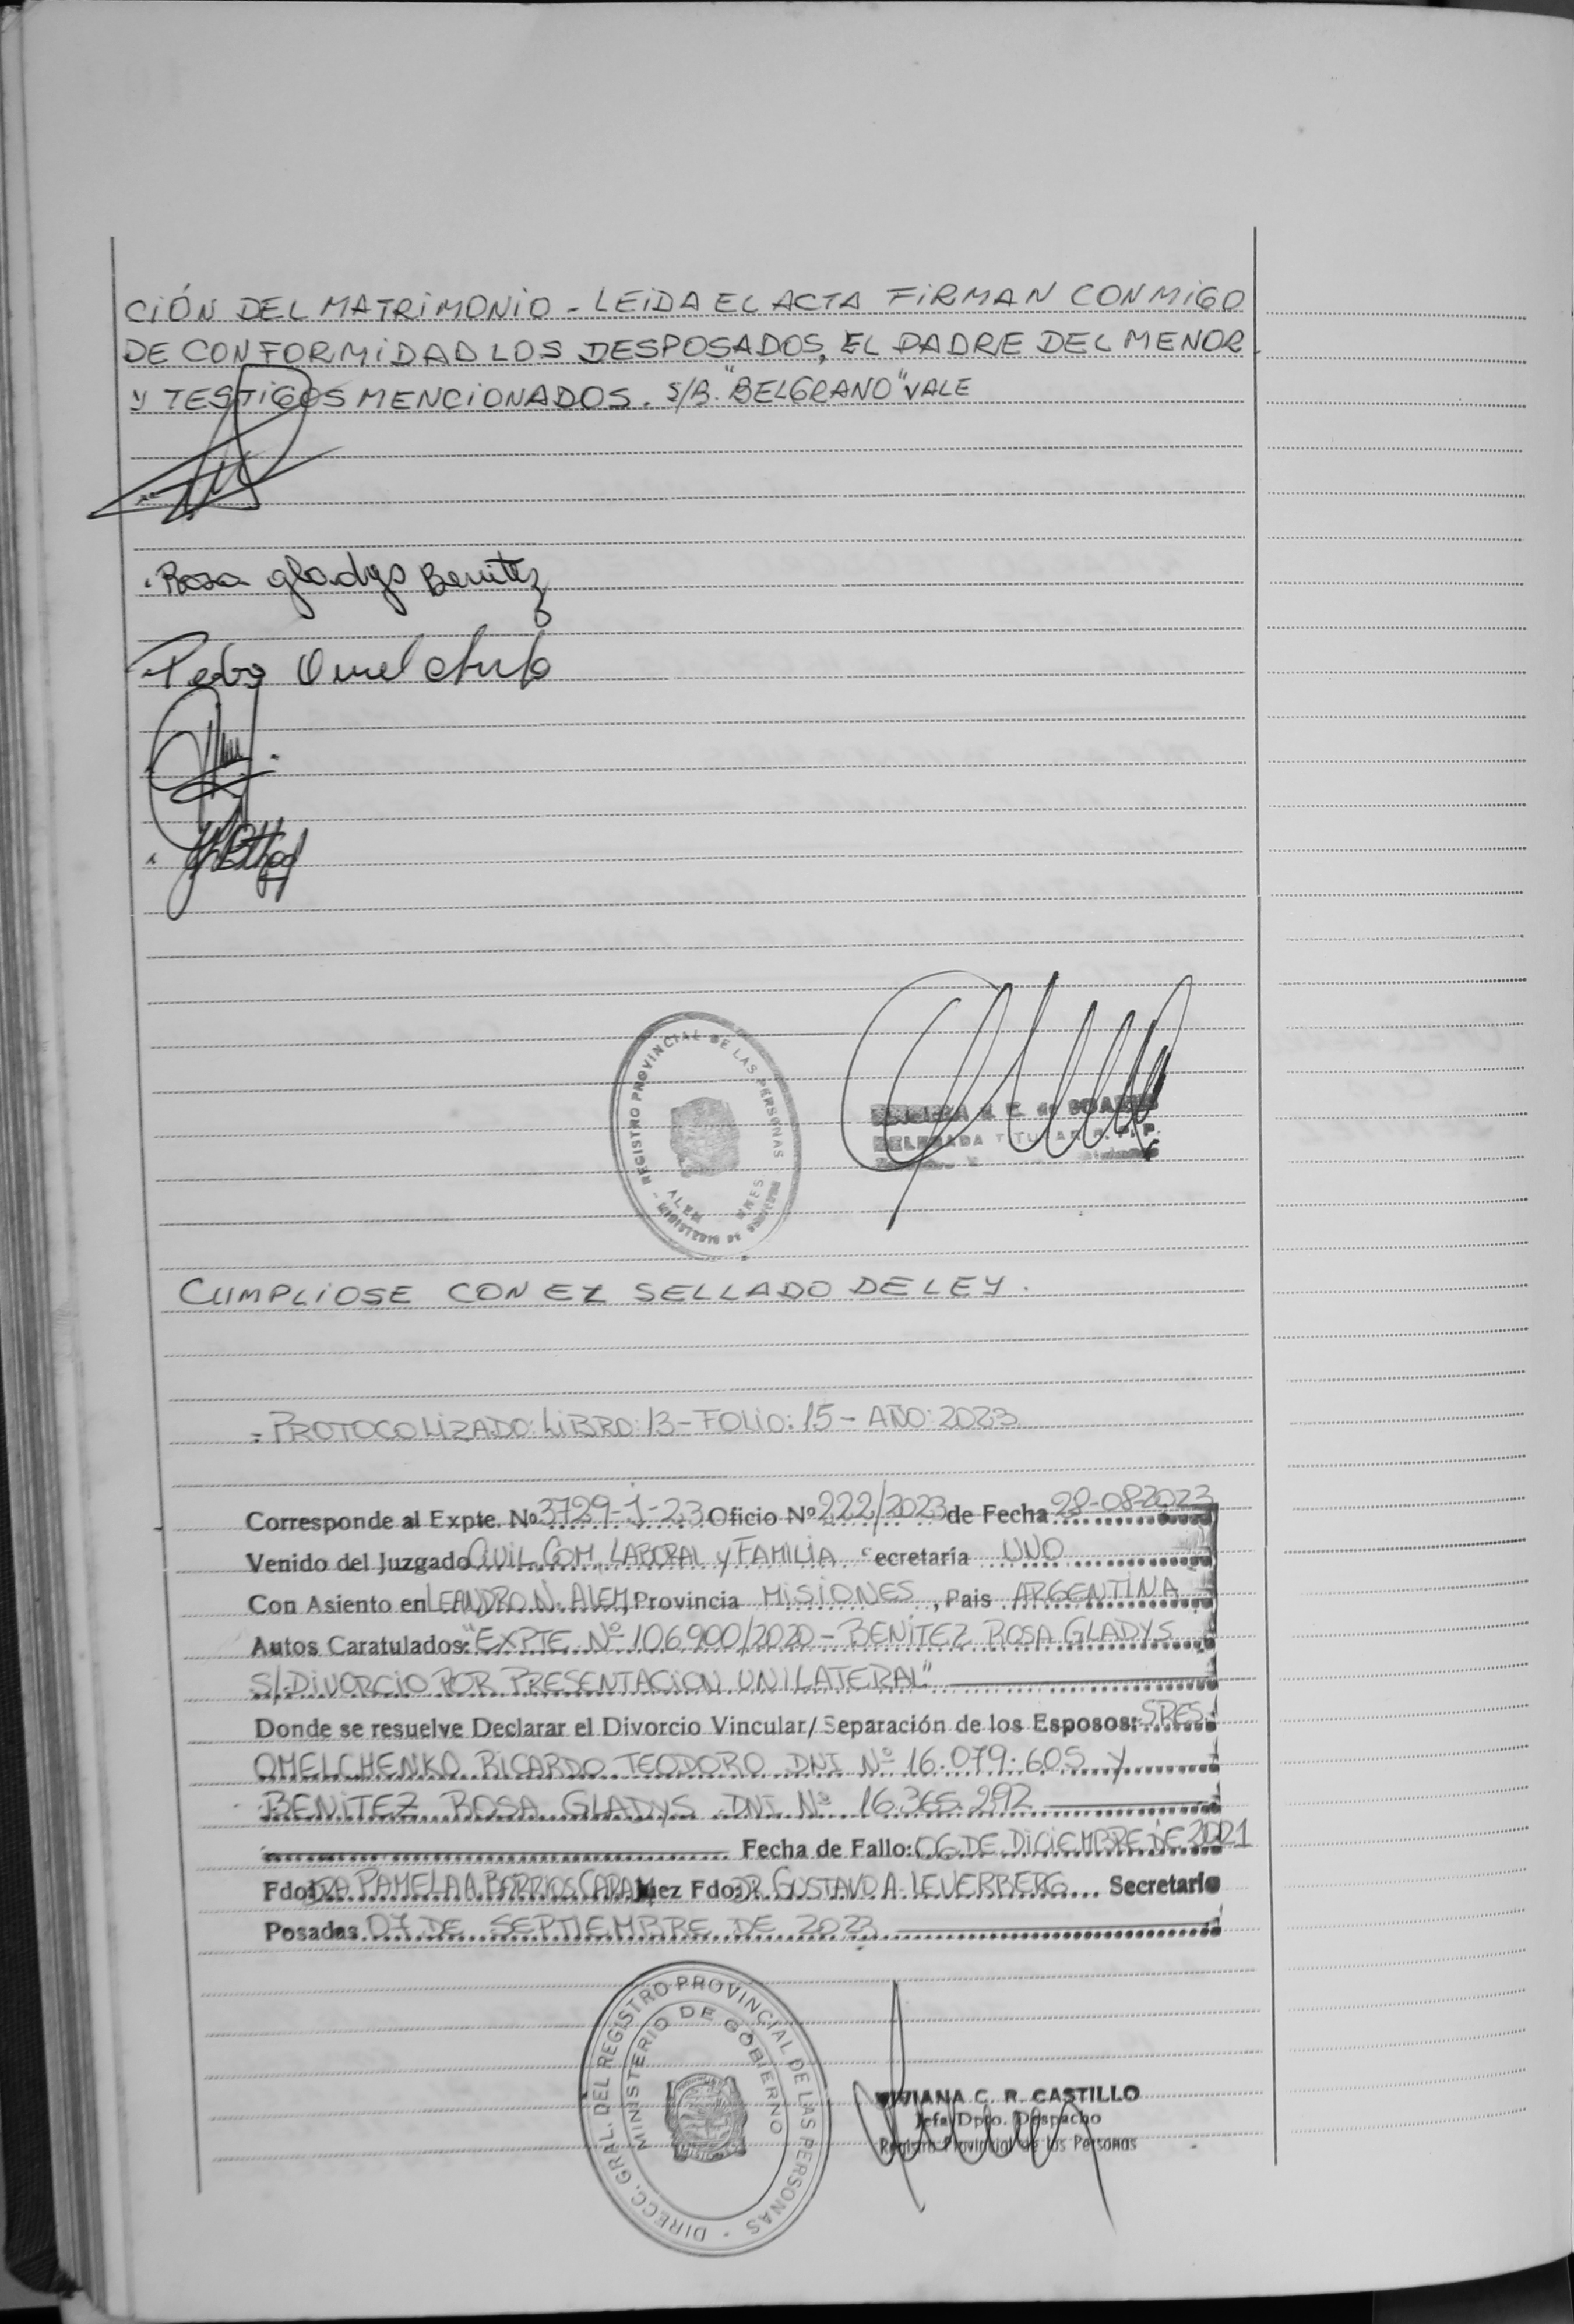 CIÓN DEL MATRIMONIO - LEIDA EL ACTA FIRMAN CONMIGO
DE CONFORMIDAD LOS DESPOSADOS, EL PADRE DEL MENOR
Y TESTIGOS MENCIONADOS. S/B. "BELGRANO" VALE
Rosa gladys Benitez
Pedro Omelchenko
REGISTRO PROVINCIAL DE LAS PERSONAS
ALEM
DELEGADA TITULAR R. P. P.
CUMPLIOSE CON EL SELLADO DE LEY.
= PROTOCOLIZADO: LIBRO: 13 - FOLIO: 15 - AÑO: 2023
Corresponde al Expte. Nº 3729-J-23 Oficio Nº 222/2023 de Fecha 28-08-2023
Venido del Juzgado CIVIL, COM, LABORAL Y FAMILIA Secretaría UNO
Con Asiento en LEANDRO N. ALEM, Provincia MISIONES, Pais ARGENTINA
Autos Caratulados: "EXPTE Nº 106900/2020 - BENITEZ ROSA GLADYS
S/ DIVORCIO POR PRESENTACION UNILATERAL"
Donde se resuelve Declarar el Divorcio Vincular/Separación de los Esposos: SRES.
OMELCHENKO RICARDO TEODORO DNI Nº 16.079.605 y
BENITEZ ROSA GLADYS DNI Nº 16.365.292
Fecha de Fallo: 06 DE DICIEMBRE DE 2021
Fdo: DRA. PAMELA A. BARRIOS CARAM Juez Fdo: DR. GUSTAVO A. LEVERBERG Secretario
Posadas 07 DE SEPTIEMBRE DE 2023
DIRECC. GRAL. DEL REGISTRO PROVINCIAL DE LAS PERSONAS
MINISTERIO DE GOBIERNO
VIVIANA C. R. CASTILLO
Jefa Dpto. Despacho
Registro Provincial de las Personas